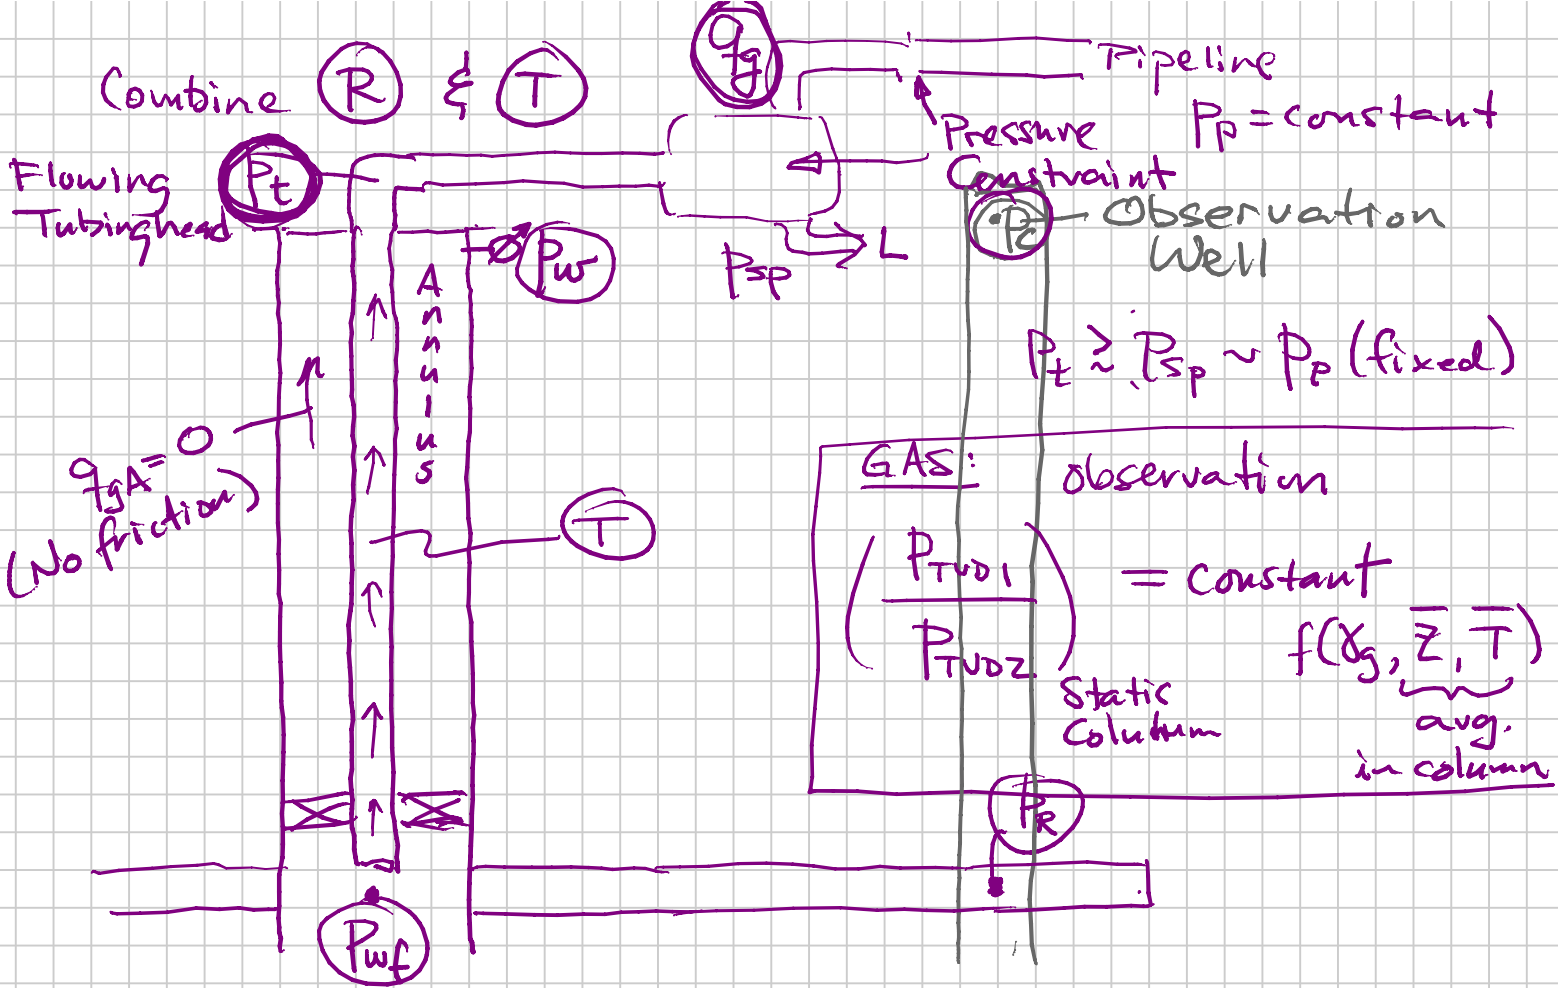 Combine R & T
qg
Pipeline
Pp = constant
Pressure
Constraint
Flowing
Tubinghead
Pt
Pw
Psp
L
Pc
Observation
Well
Pt ≳ Psp ~ Pp (fixed)
Annulus
qgA = 0
(No friction)
T
GAS: Observation
(PTVD1 / PTVD2) = constant
Static
Column
f(γg, Z̅, T̅)
avg.
in column
PR
Pwf